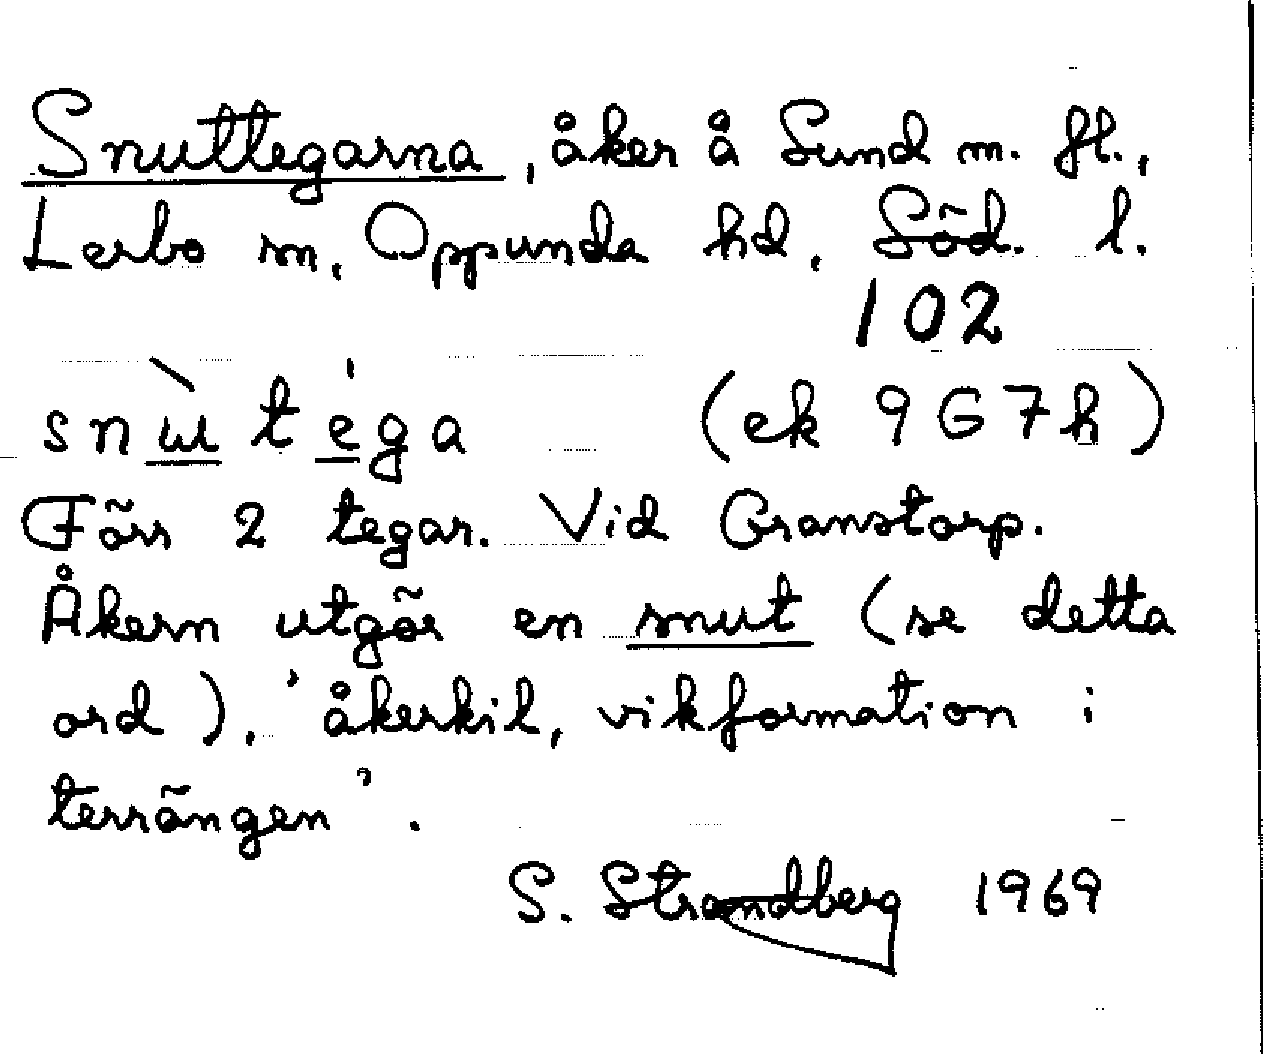 Snuttegarna, åker å Sund m. fl.,
Lerbo sn, Oppunda hd, Söd. l.
102
snɯ̀téga (ek 9G7h)
Förr 2 tegar. Vid Granstorp.
Åkern utgör en snut (se detta
ord), 'åkerkil, vikformation i
terrängen'.
S. Strandberg 1969